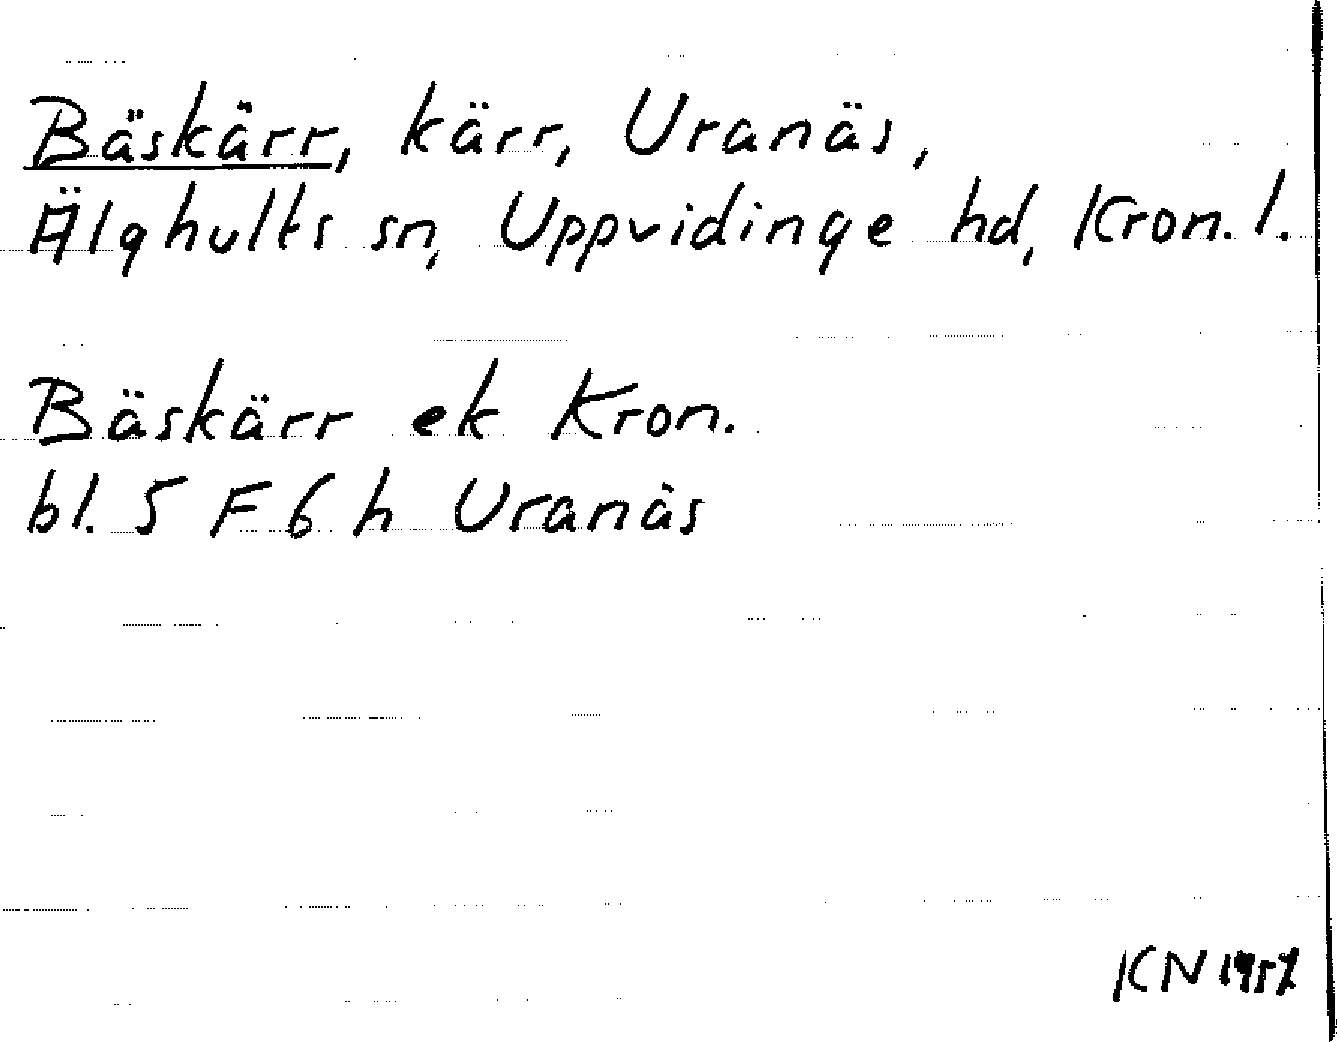 Bäskärr, kärr, Uranäs,
Älghults sn, Uppvidinge hd, Kron. l.
Bäskärr ek Kron.
bl. 5 F 6 h Uranäs
KN 1957